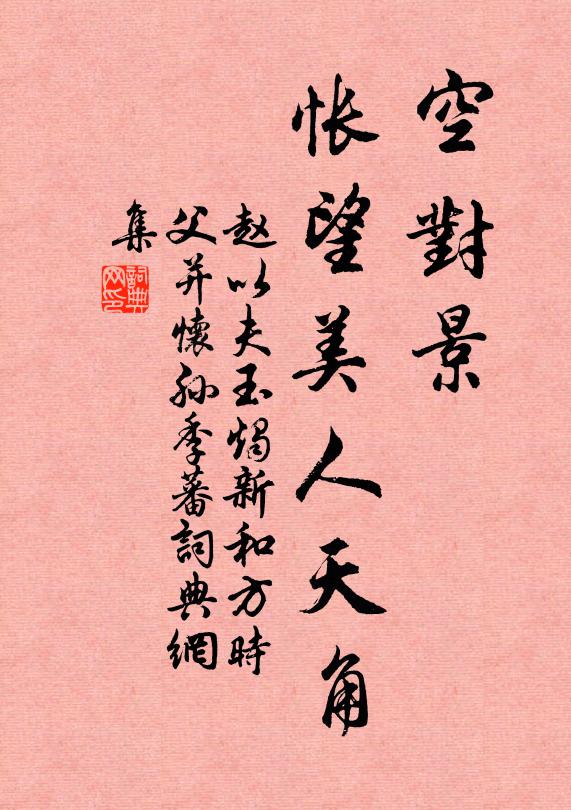 空對景
悵望美人天角
赵以夫玉燭新和方時
父并懷孙季蕃詞典網
集
詞典
网印